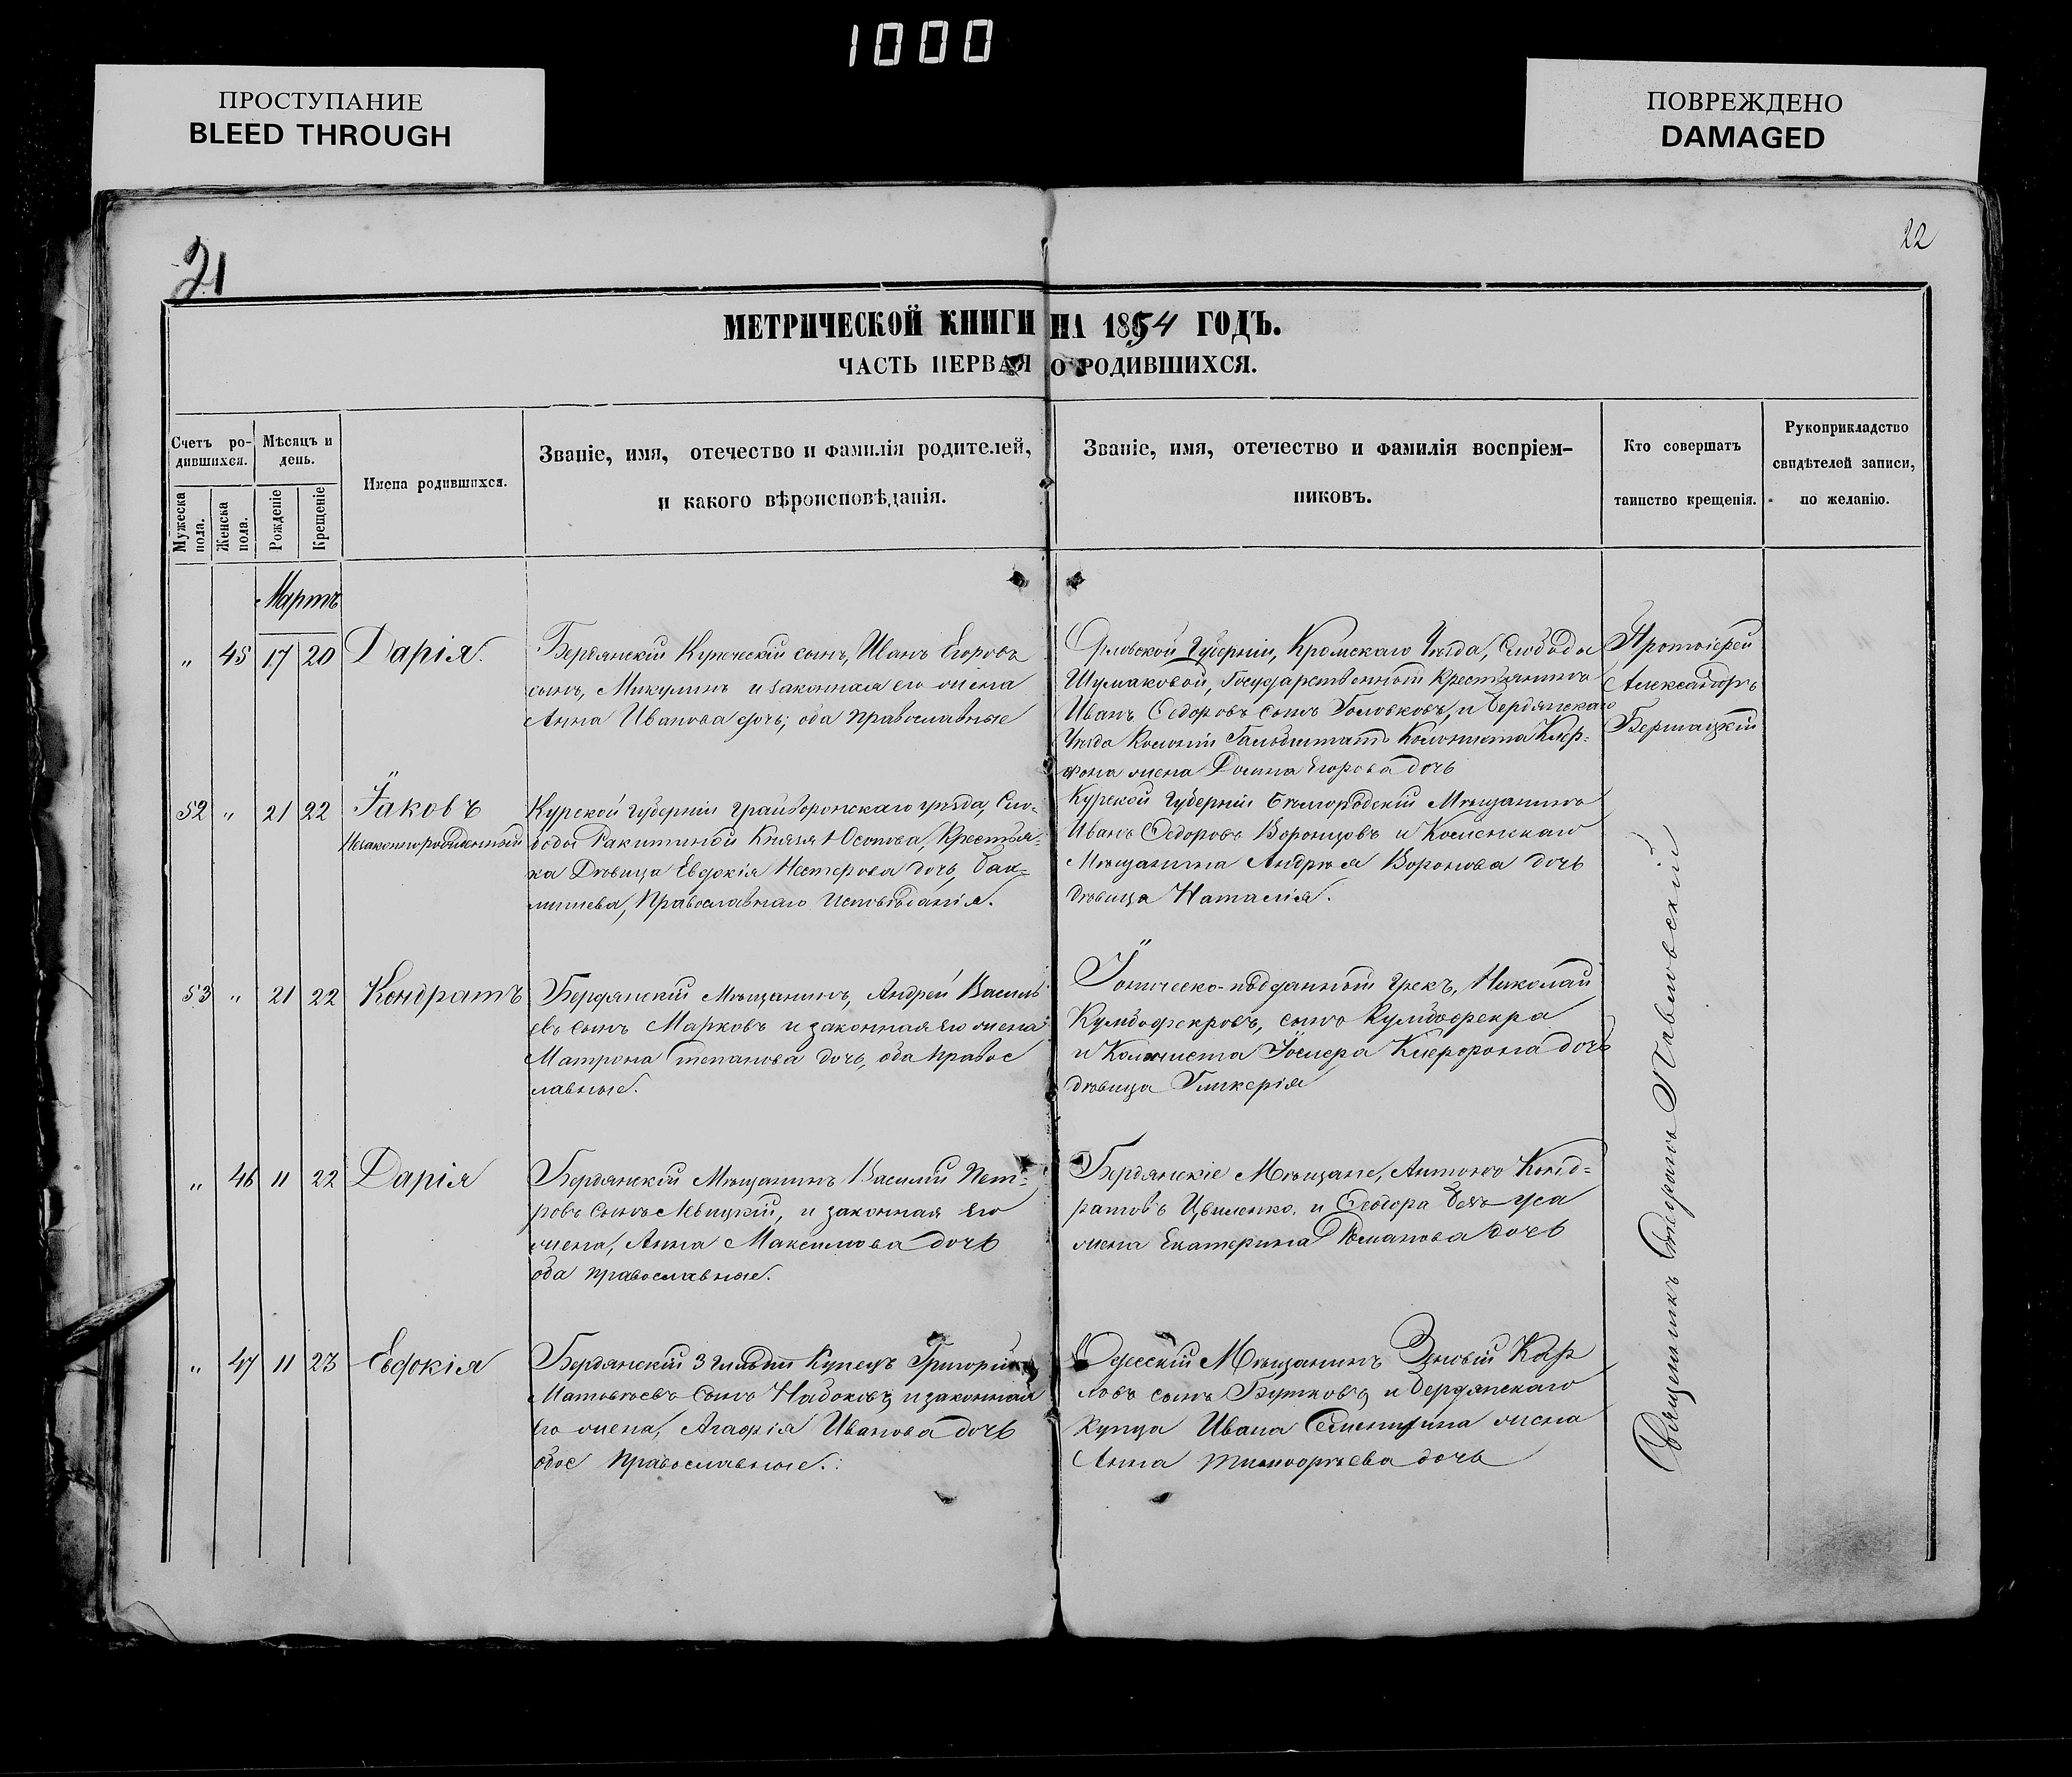 1000
ПРОСТУПАНИЕ
BLEED THROUGH
ПОВРЕЖДЕНО
DAMAGED
21
22
МЕТРИЧЕСКОЙ КНИГИ НА 1854 ГОДЪ.
ЧАСТЬ ПЕРВАЯ О РОДИВШИХСЯ.
Счетъ ро-
дившихся.
Мужеска пола.
Женска пола.
Мѣсяцъ и
день.
Рожденіе
Крещеніе
Имена родившихся.
Званіе, имя, отечество и фамилія родителей,
и какого вѣроисповѣданія.
Званіе, имя, отечество и фамилія воспріем-
никовъ.
Кто совершатъ
таинство крещенія.
Рукоприкладство
свидѣтелей записи,
по желанію.
Мартъ
" 45 17 20 Дарія.
Бердянскій Купеческій сынъ, Иванъ Егоровъ
сынъ, Микулинъ и законная его жена
Анна Иванова дочь; оба православные
Орловской Губерніи, Кромскаго Уѣзда, Слободы
Шумаковой, Государственный Крестьянинъ
Иванъ Ѳедоровъ сынъ Головковъ, и Бердянскаго
Уѣзда Колоніи Колониста Клер-
фона жена Домна Егорова дочь
Протоіерей
Александръ
52 " 21 22 Іаковъ
Незаконнорожденный
Курской Губерніи Грайворонскаго уѣзда, Сло-
боды Ракитиной Князя Юсопова, Крестья-
ка Дѣвица Евдокія Нестерова дочь,
Православнаго Исповѣданія.
Курской Губерніи Бѣлгородскій Мѣщанинъ
Иванъ Ѳедоровъ Воронцовъ и
Мѣщанина Андрея Воронова дочь
дѣвица Наталія.
53 " 21 22 Кондратъ
Бердянскій Мѣщанинъ, Андрей Василь
евъ сынъ Марковъ и законная его жена
Матрона Степанова дочь, оба правос
лавные.
Іоническо-подданный Грекъ, Николай
сынъ
и Колониста Клерфона дочь
дѣвица Гликерія
" 46 11 22 Дарія
Бердянскій Мѣщанинъ Василій Пет-
ровъ сынъ Левицкій, и законная его
жена, Анна Максимова дочь
оба православные.
Бердянскіе Мѣщане, Антонъ Конд-
ратовъ Цвиленко. и Ѳедора
жена Екатерина Романова дочь
" 47 11 23 Евдокія
Бердянскій 3 гильдіи Купецъ Григорій
Матвѣевъ сынъ Набоковъ, и законная
его жена, Агафія Иванова дочь
обое Православные.
Одесскій Мѣщанинъ Зиновій Кар
ловъ сынъ Бутковъ, и Бердянскаго
купца Ивана жена
Анна Тимофѣева дочь
Священникъ Павловскій